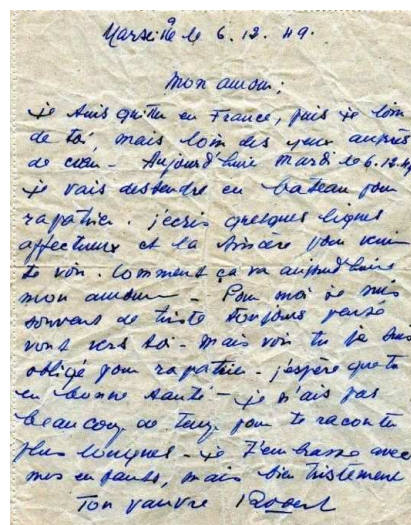 Marseille le 6.12.49.
mon amour;
je suis en France, puis je loin
de toi, mais loin des yeux auprès
de cœur - Aujourd'hui Mardi le 6.12.49
je vais destendre en bateau pour
rapatrier. j'ecris quelques lignes
affectueux et la sincère pour venir
te voir. Comment ça va aujourd'hui
mon amour - Pour moi je suis
souvent de triste toujours pensé
vont vers toi - Mais vois tu je suis
obligé pour rapatrier - j'espère que tu
en bonne santé - je n'ais pas
beaucoup de temp pour te raconte
plus longues - je t'embrasse avec
mes enfants, mais bien tristement
Ton pauvre Robert